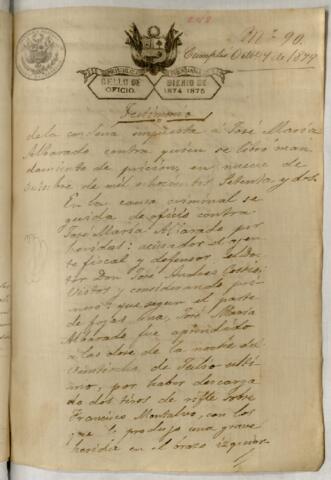 248
Nº 90.
Cumplió Octe 27 de 1879
SELLO DE OFICIO.
BIENIO DE 1874 1875
Testimonio
de la condena impuesta á José María
Alvarado contra quien se libró man-
damiento de prision, en nueve de
de mil ochocientos setenta y dos.
En la causa criminal se
guida de oficio contra
José María Alvarado por
heridas: acusador el ajen-
te fiscal y defensor el Doc-
tor Don José Andres
Vistos y considerando pri-
mero: que segun el parte
de fojas una, José María
Alvarado fue aprehendido
a las doce de la noche del
veintiocho de Julio ulti-
mo, por haber descarga
do dos tiros de rifle sobre
Francisco Montalvo, con los
que le produjo una grave
heridia en el brazo izquier-